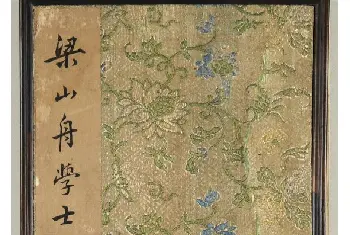 梁山舟學士